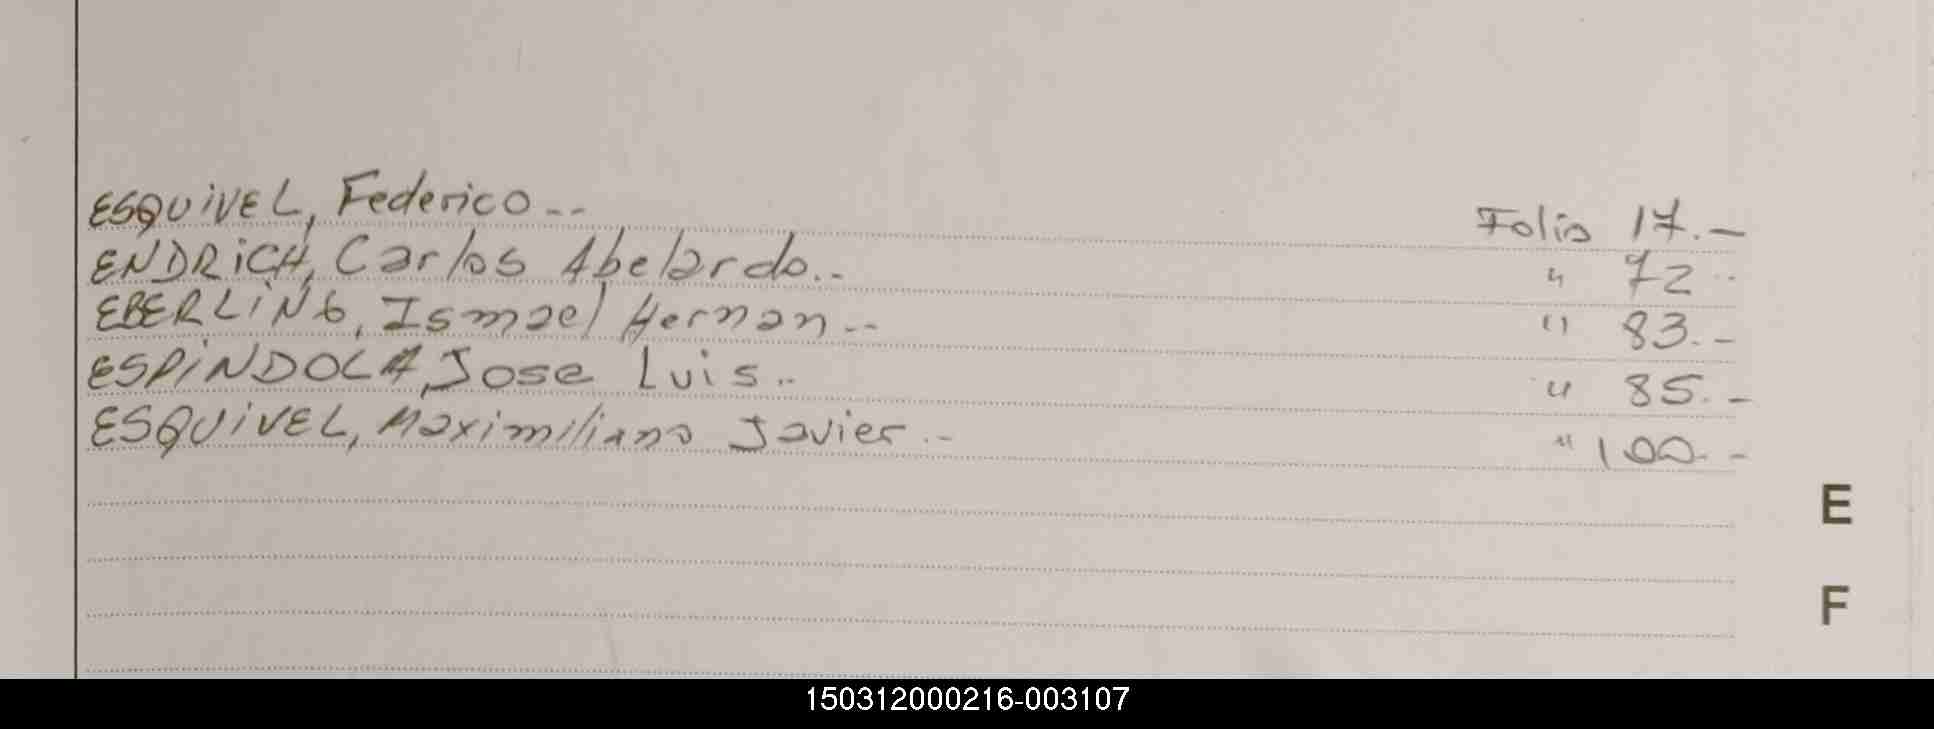 ESQUIVEL, Federico -- Folio 17.-
ENDRICH, Carlos Abelardo.. " 72 --
EBERLING, Ismael Hernan -- " 83.--
ESPINDOLA, Jose Luis.. " 85.-
ESQUIVEL, Maximiliano Javier -- " 100.--
E
F
150312000216-003107